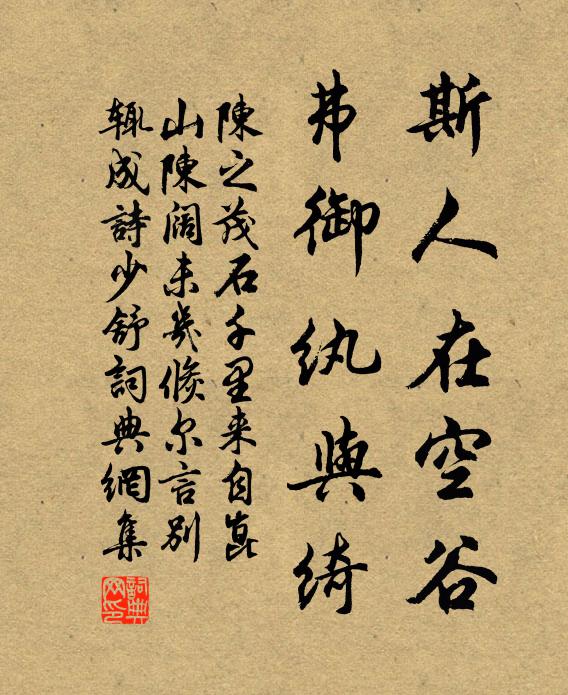 斯人在空谷
弗御纨與绮
陳之茂石千里来自崑
山陳阔未幾倏尔言别
辄成詩少舒詞典網集
詞典网印